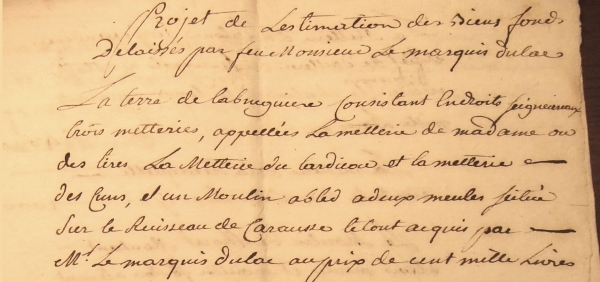 Projet de Lestimation des Biens fonds
Delaissés par feu Monsieur Le marquis dulac
La terre de labruguiere Consistant Endroits seigneuriaux
trois metteries, appellées La metterie de madame ou
des lires La Metterie du tardicou et la metterie
des Cuns, et un Moulin abled adeux meules scitué
Sur le Ruisseau de Carausse le tout acquis par
Mr. Le marquis dulac au prix de cent mille Livres